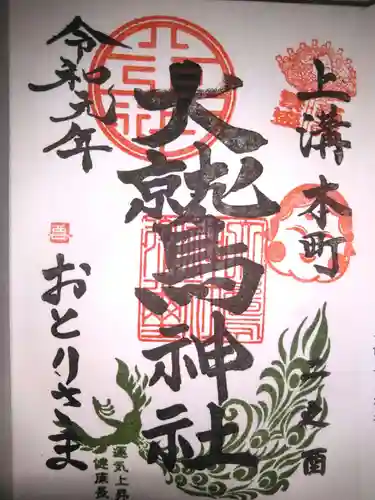 上溝
本町
二の酉
大鷲神社
令和元年
おとりさま
運気上昇
健康長